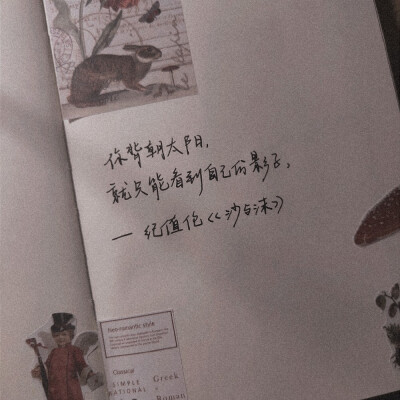 你背朝太阳，
就只能看到自己的影子。
— 纪伯伦《沙与沫》
Neo-romantic style
Classical
SIMPLE
NATIONAL
Greek
Roman